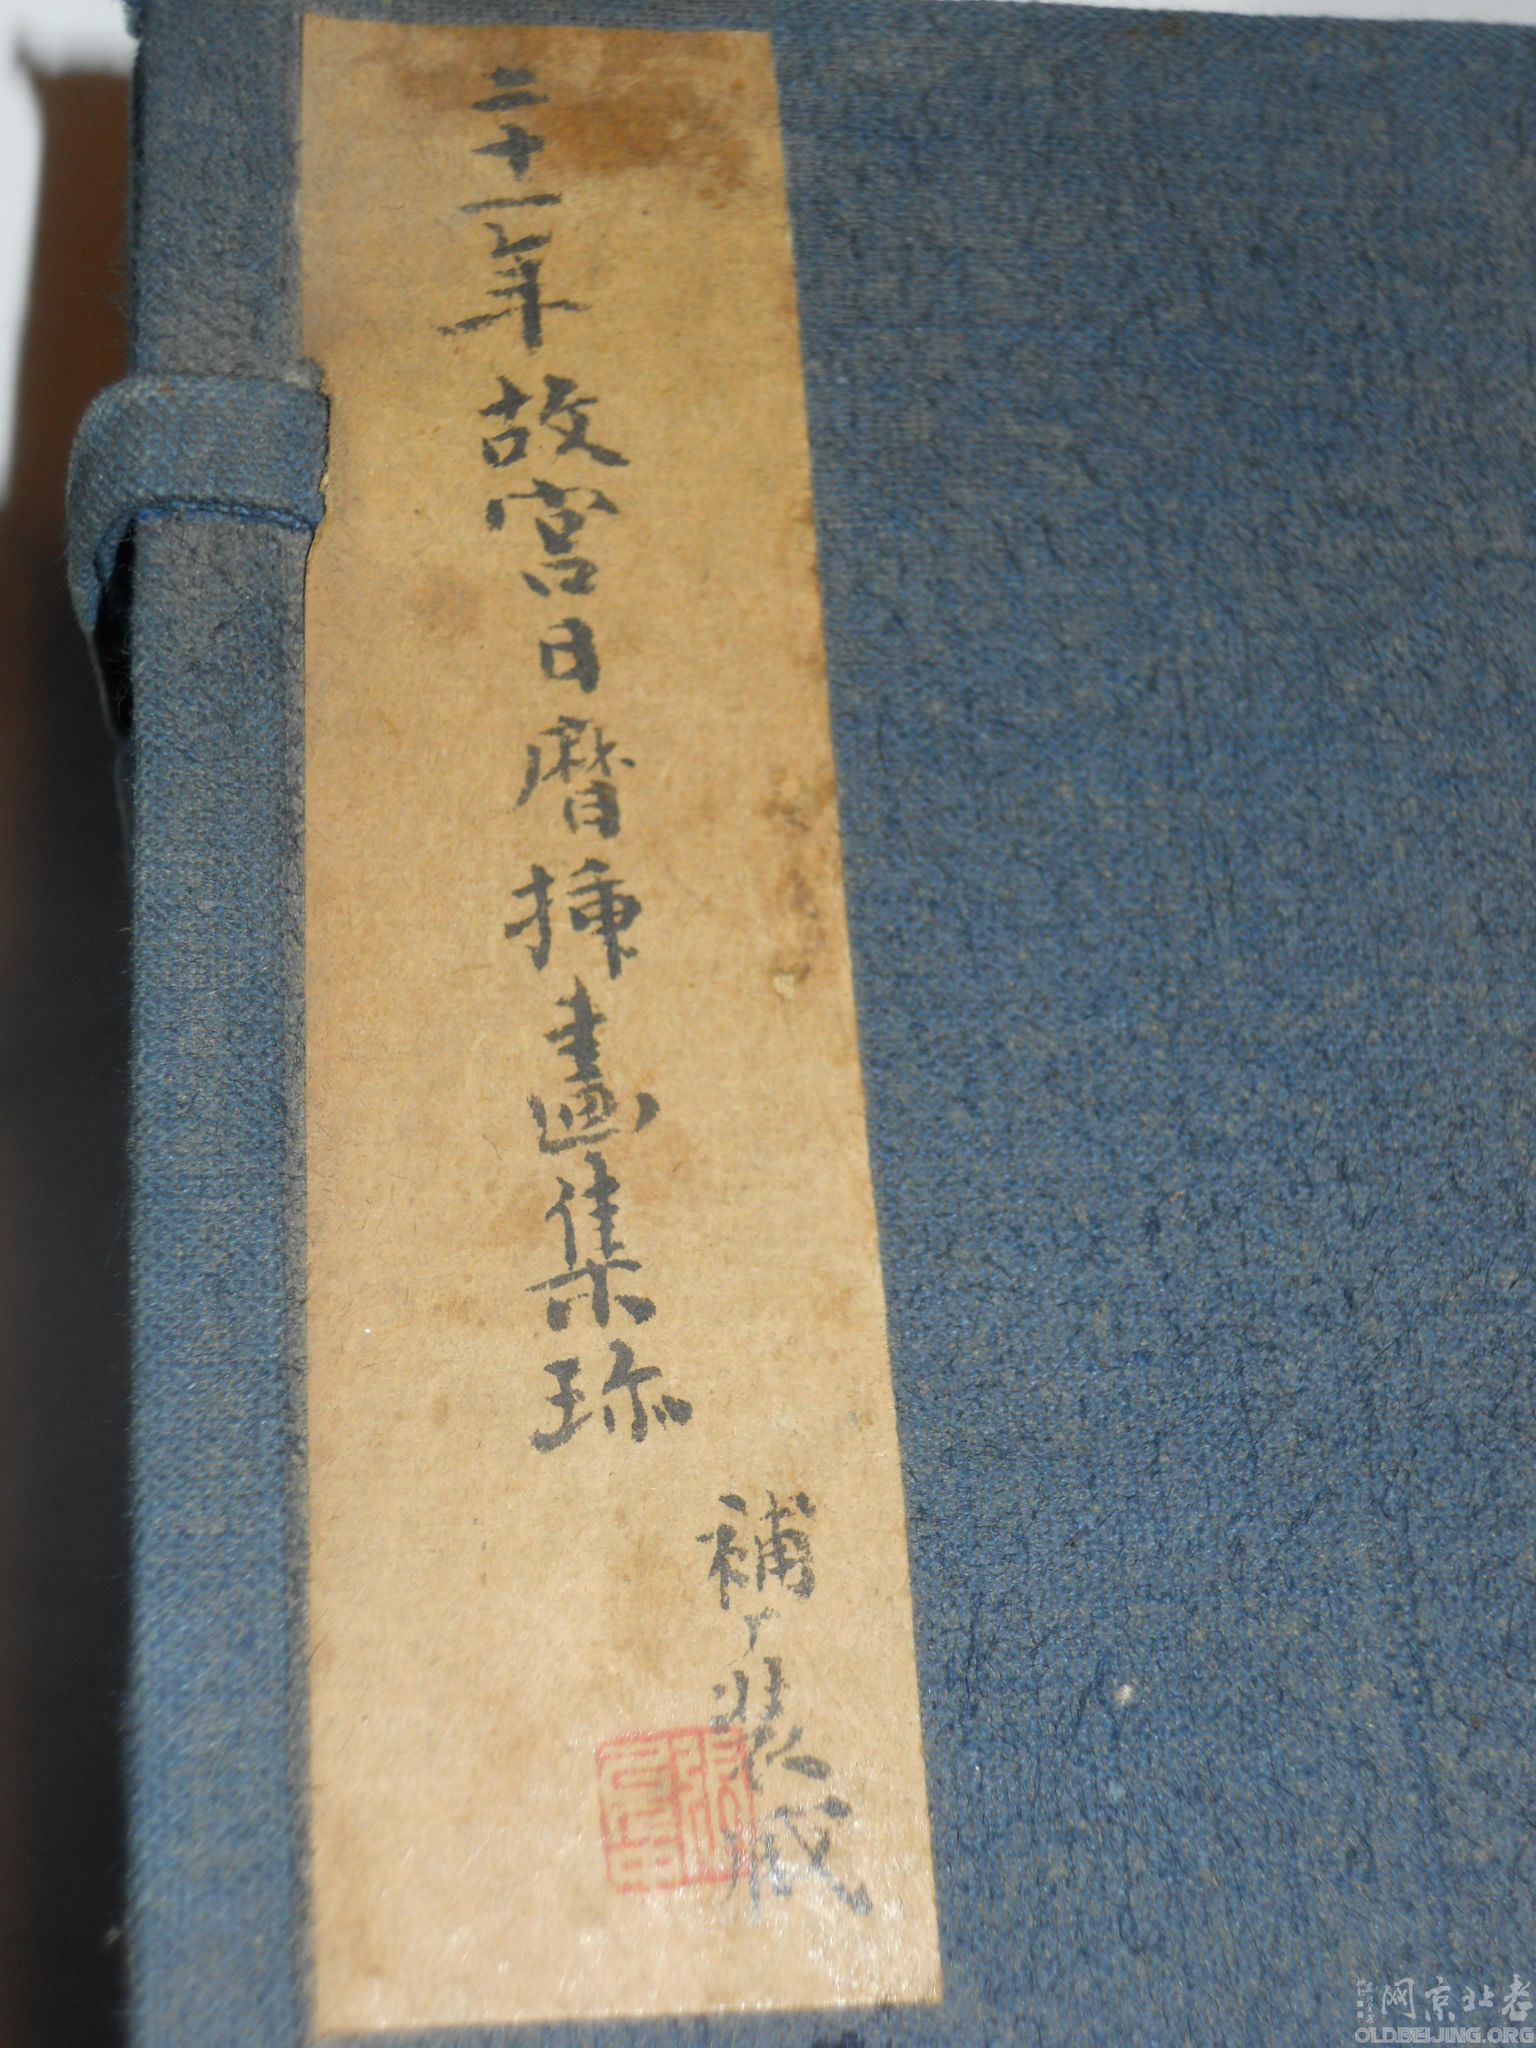 二十一年故宫日曆揷畫集珎
補
裝成
老北京网
OLDBEIJING.ORG